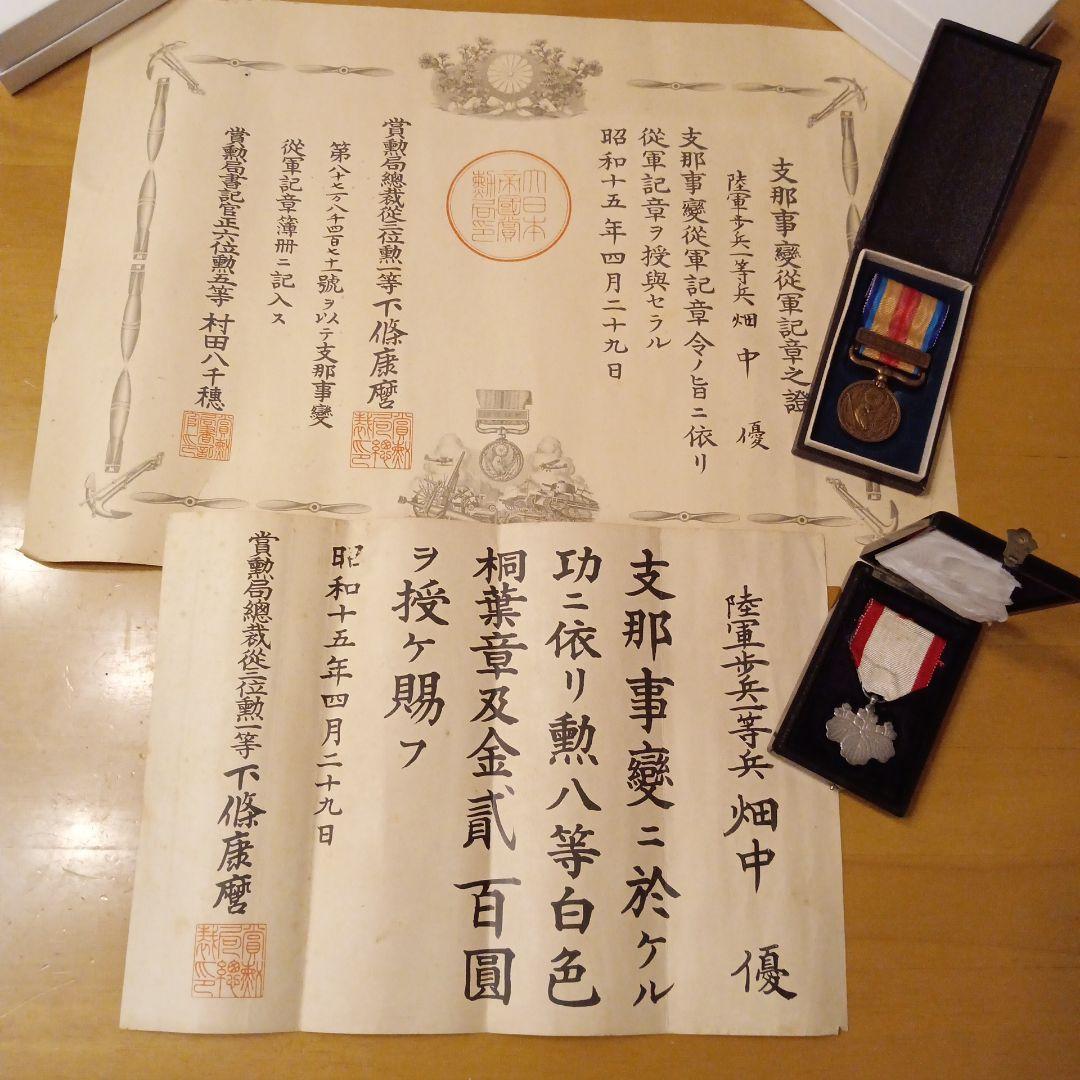 支那事變從軍記章之證
陸軍歩兵一等兵 畑中 優
支那事變從軍記章令ノ旨ニ依リ
從軍記章ヲ授與セラル
昭和十五年四月二十九日
大日本
帝國賞
勲局印
賞勲局總裁從三位勲一等下條康麿
賞勲
局總
裁印
第八十七万八千四百七十一號ヲ以テ支那事變
從軍記章簿册ニ記入ス
賞勲局書記官正六位勲五等村田八千穗
陸軍歩兵一等兵 畑中 優
支那事變ニ於ケル
功ニ依リ勲八等白色
桐葉章及金貳百圓
ヲ授ケ賜フ
昭和十五年四月二十九日
賞勲局總裁從三位勲一等下條康麿
賞勲
局總
裁印